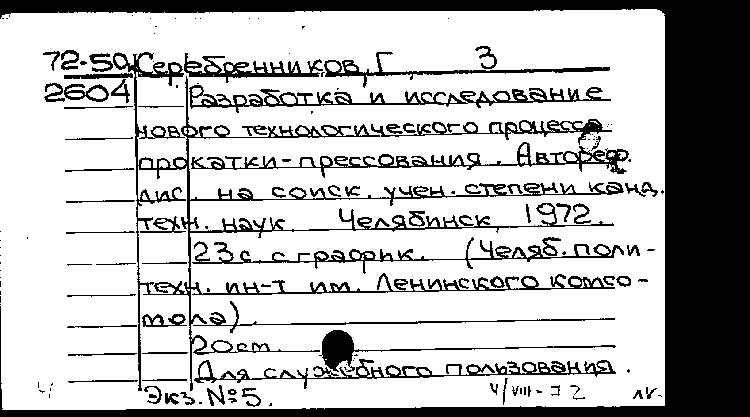 72-50 Серебренников, Г. 3
2604 Разработка и исследование
нового технологического процесса
прокатки-прессования. Автореф.
дис. на соиск. учен. степени канд.
техн. наук Челябинск, 1972.
23 с. с график. (Челяб. поли-
техн. ин-т им. Ленинского комсо-
мола).
20 см.
Для служебного пользования.
Экз. № 5. V/VIII-72